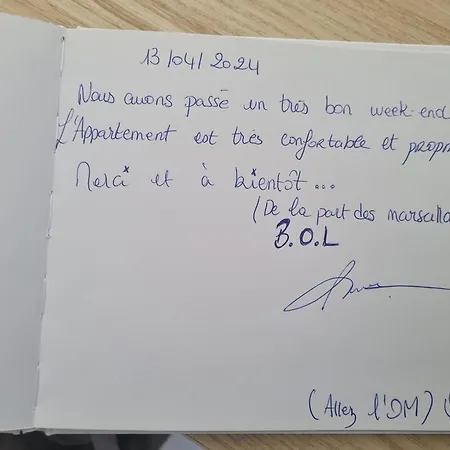 13/04/2024
Nous avons passé un très bon week-end
L'Appartement est très confortable et propr
Merci et à bientôt...
(De la part des marsailla
B.O.L
(Allez l'OM) (